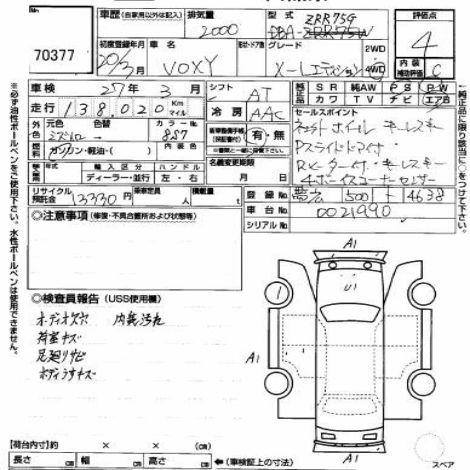 車歴 (自家用以外は記入)
排気量 2000
型式 ZRR75G
DBA-ZRR75W
評価点 4
70377
初度登録年月 20/3月
車名 VOXY
形状・ドア数
グレード X-Lエディション
2WD
4WD
内装補助評価 C
車検 27年 3月
シフト AT
純正品 SR 純AW PS PW
カワ TV ナビ エアB
走行 138,020 Km マイル
冷房 AAC
セールスポイント
外色 元色 色替 カラー№ 8S7 内装色
新車整備手帳(保証書付) 有・無
キーレスキー
燃料 ガソリン・軽油・( )
Pスライドドア
名義変更期限 月 日
輸入区分 ハンドル
ディーラー・並行 左・右
4 コーナーセンサー
リサイクル預託金 13330円
乗車定員 人
積載量 kg
登録№ 500 4638
車台№ 0021990
シリアル№
◎注意事項 (修復・不具合箇所および状態等)
A1
U1
1
◎検査員報告 (USS使用欄)
オーディオ穴 内装汚れ
荷室キズ
足廻りサビ
ボディうすキズ
A1
A1
A1
【荷台内寸】約 × × (cm)
長さ cm 幅 cm 高さ cm
←(車検証上の寸法)
スペア
※必ず油性ボールペンをご使用下さい。水性ボールペンは使用できません。